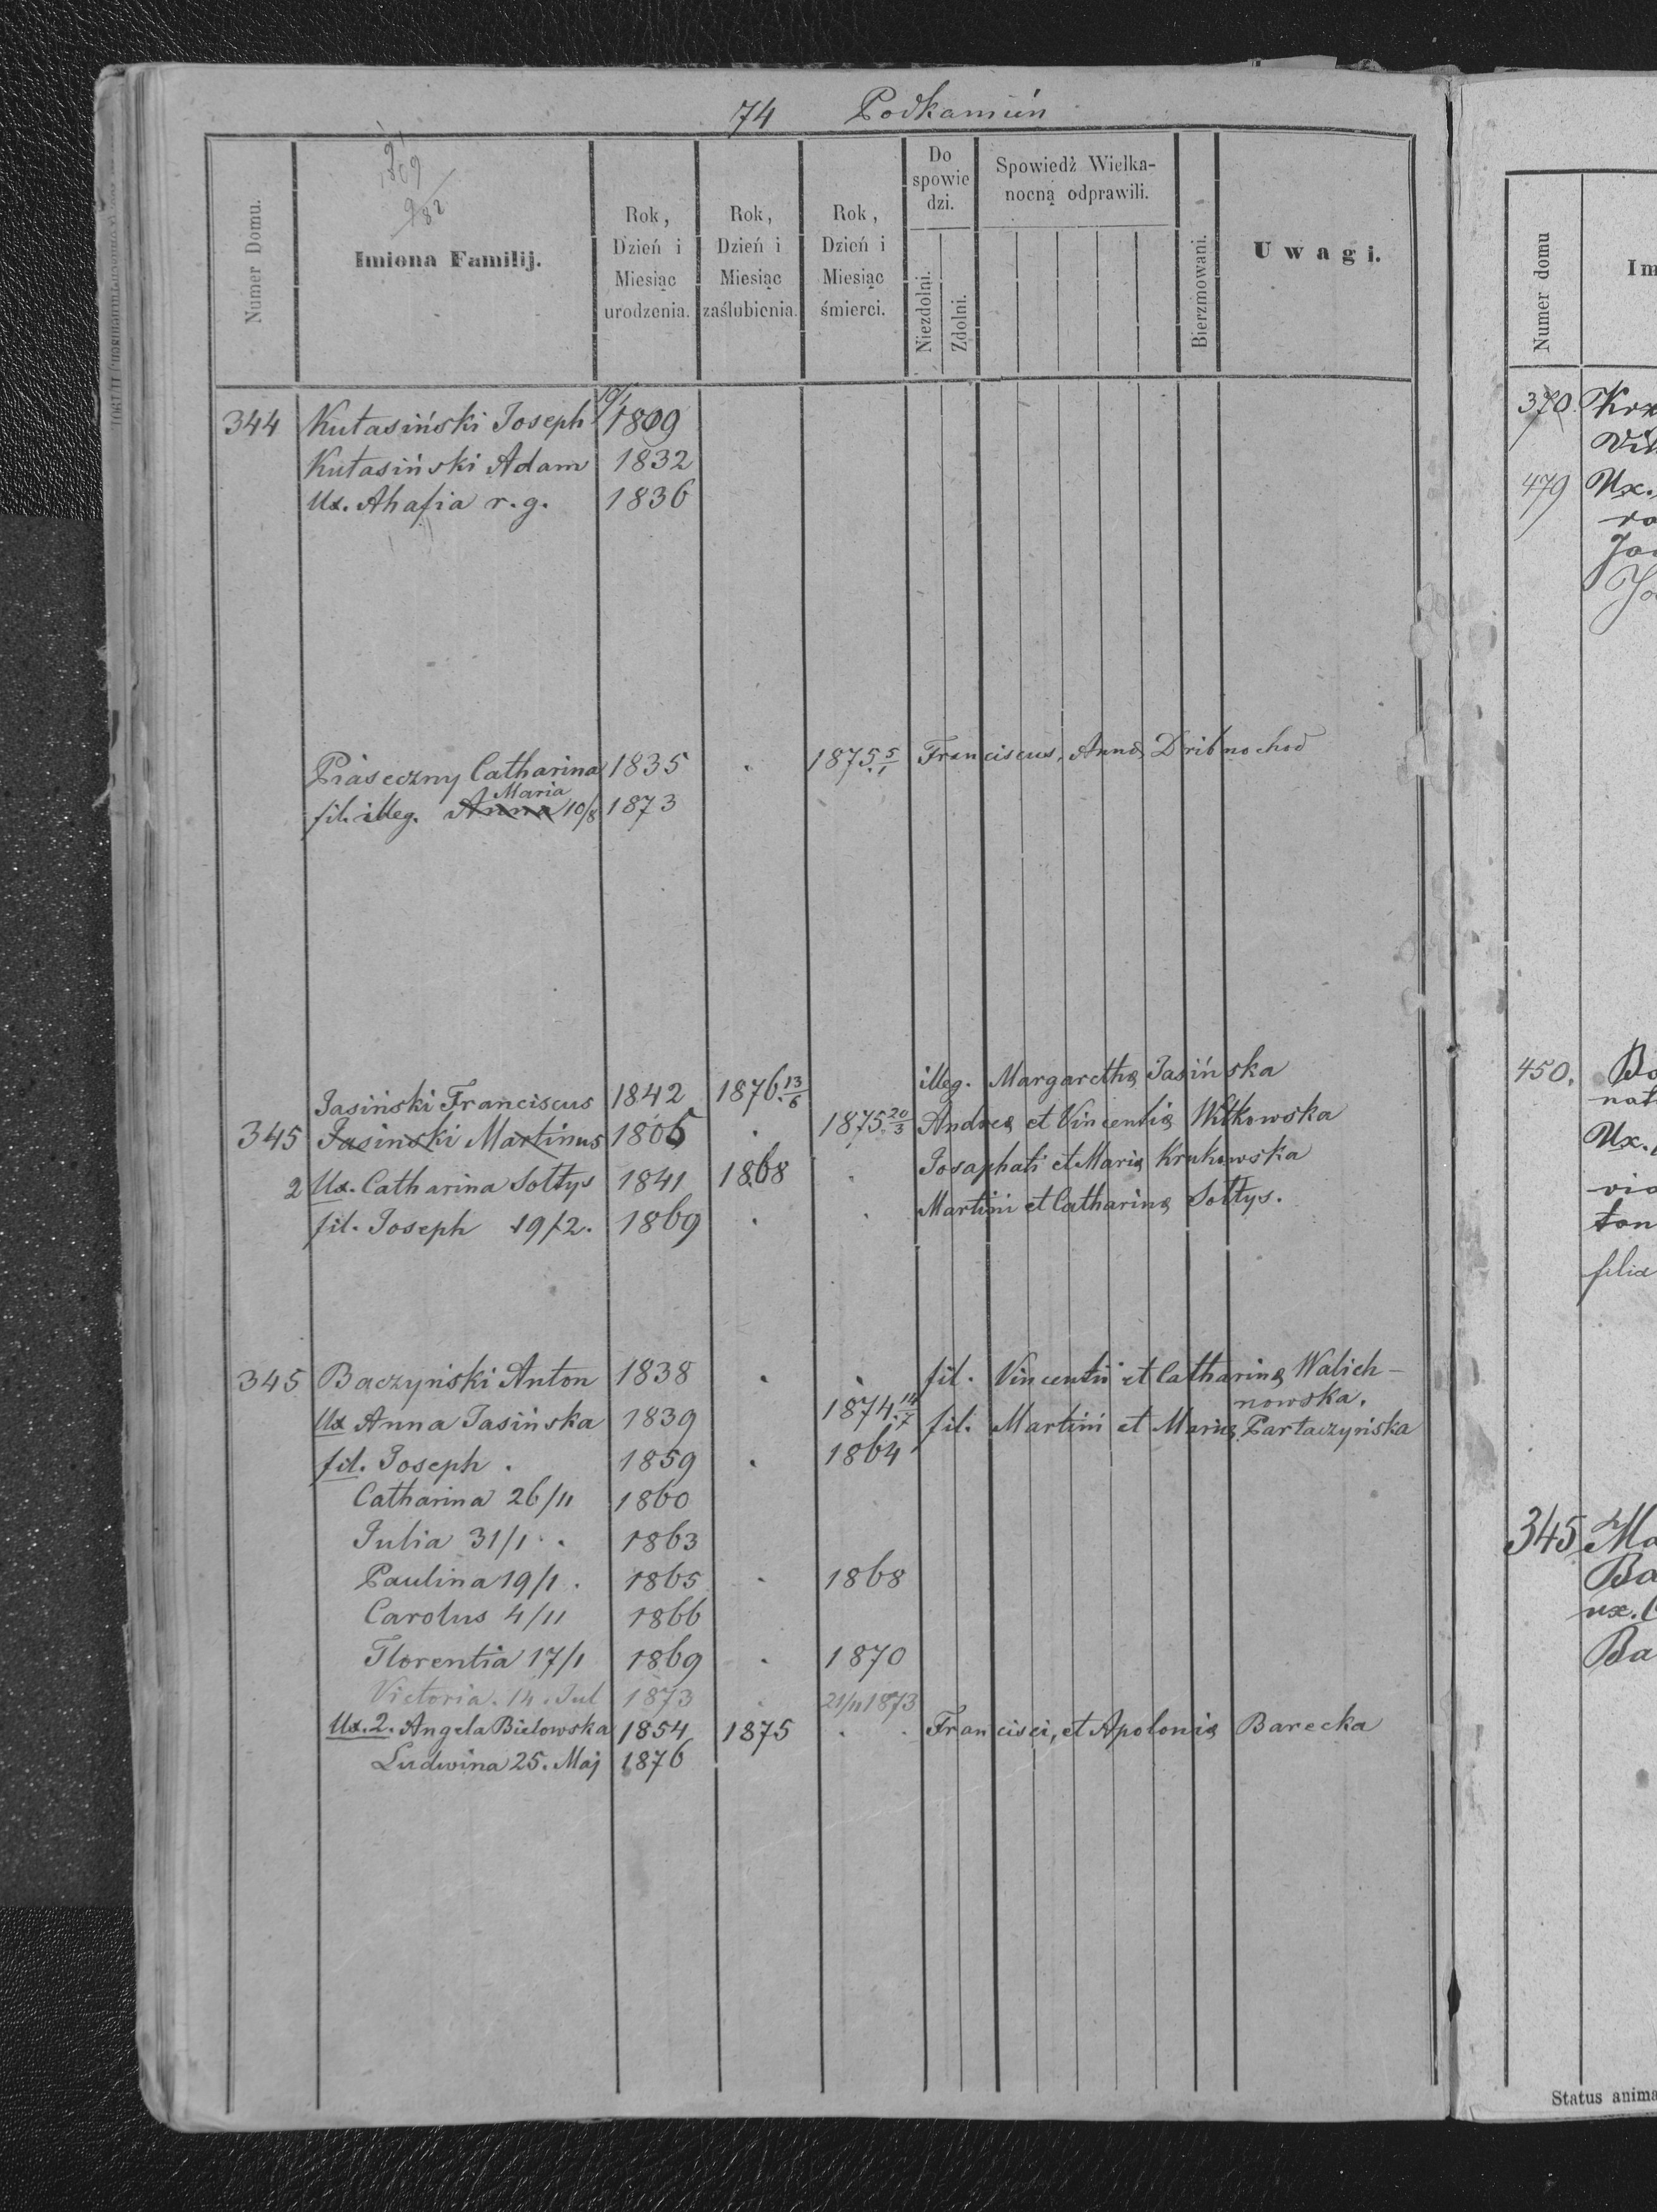 74 Podkamień
Numer Domu.
Imiona Familij.
Rok, Dzień i Miesiąc urodzenia.
Rok, Dzień i Miesiąc zaślubienia.
Rok, Dzień i Miesiąc śmierci.
Do spowie dzi.
Niezdolni.
Zdolni.
Spowiedź Wielka-
nocną odprawili.
Bierzmowani.
Uwagi.
344 Kutasiński Joseph 19/1 1809
Kutasiński Adam 1832
Ux. Ahafia r. g. 1836
Piaseczny Catharina 1835 . 1875 5/1 Franciscus, Anna Dribnochod
Maria
fil. illeg. Anna 10/8 1873
Jasiński Franciscus 1842 1876. 13/6 illeg. Margaretha Jasińska
345 Jasinski Martinus 1806 . 1875. 20/3 Andrea et Vincentia Witkowska
2 Ux. Catharina Sołtys 1841 1868 . Josaphati et Maria Krukowska
fil. Joseph 19/2. 1869 . . Martini et Catharina Sołtys.
345 Baczyński Anton 1838 . . fil. Vincentii et Catharina Walich-
nowska.
Ux Anna Jasińska 1839 1874. 14/7 fil. Martini et Maria Partaczyńska
fil. Joseph . 1859 . 1864
Catharina 26/11 1860
Julia 31/1 . 1863
Paulina 19/1 . 1865 . 1868
Carolus 4/11 1866
Florentia 17/1 1869 . 1870
Victoria. 14. Jul 1873 . 21/11 1873
Ux. 2. Angela Bielowska 1854 1875 . . Francisci, et Apolonia Barecka
Ludwina 25. Maj 1876
Numer domu
Im
370.
479 Ux.
450.
Ux.
345 Ma
Ba
ux.
Ba
Status anima